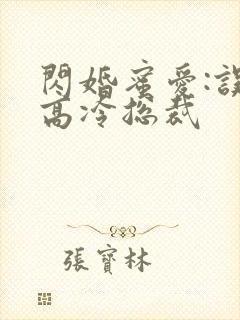 閃婚蜜愛:誤
高冷總裁
張寶林